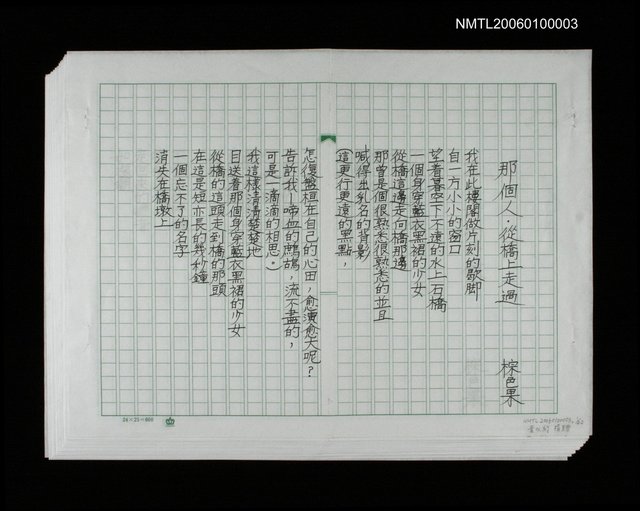 NMTL20060100003
那個人·從橋上走過
棕色果
我在此樓閣做片刻的歇脚
自一方小小的窗口
望着暮空下不遠的水上石橋
一個身穿藍衣黑裙的少女
從橋這邊走向橋那邊
那曾是個很熟悉很熟悉的並且
喊得出乳名的背影
(這更行更遠的黑點,
怎復盤桓在自己的心田,愈演愈大呢?
告訴我—啼血的鷓鴣,流不盡的,
可是一滴滴的相思.)
我這樣清清楚楚地
目送着那個身穿藍衣黑裙的少女
從橋的這頭走到橋的那頭
在這是短亦長的幾秒鐘
一個忘不了的名字
消失在橋墩上
24×25=600